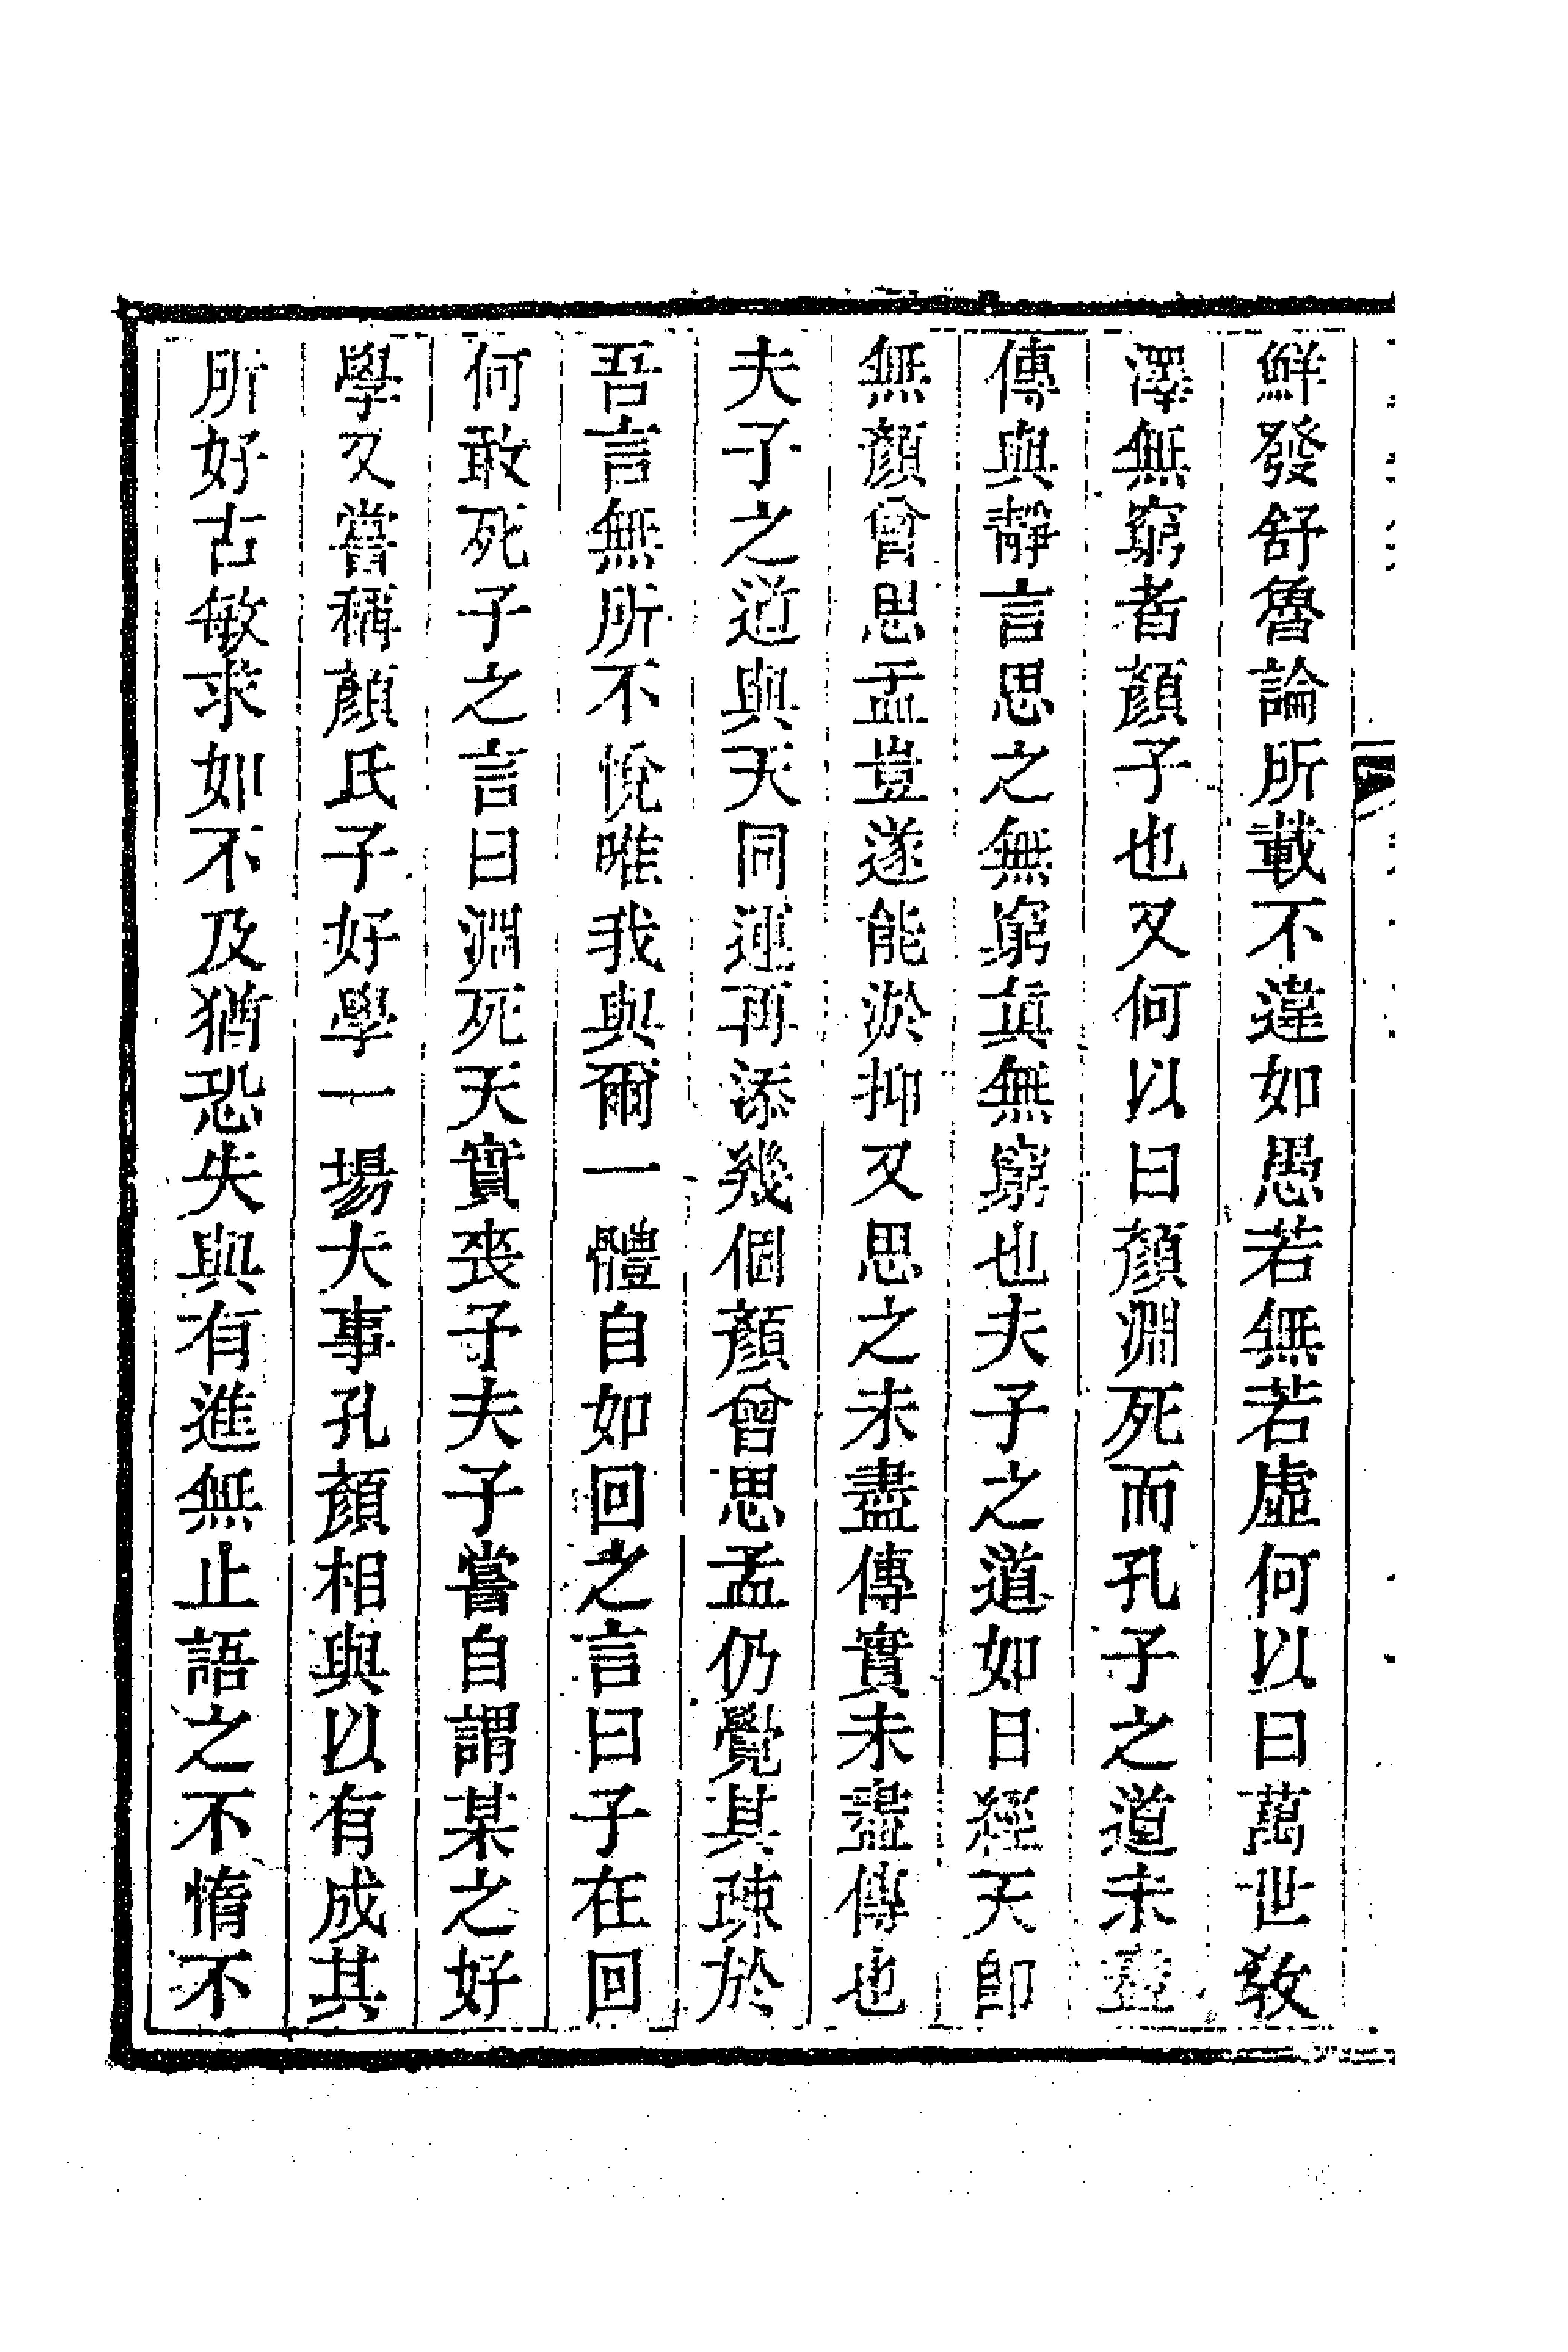 鮮發舒魯論所載不違如愚若無若虛何以曰萬世教
澤無窮者顏子也又何以曰顏淵死而孔子之道未盡
傳與靜言思之無窮真無窮也夫子之道如日經天即
無顏曾思孟豈遂能淤抑又思之未盡傳實未盡傳也
夫子之道與天同運再添幾個顏曾思孟仍覺其疎於
吾言無所不悅唯我與爾一體自如回之言曰子在回
何敢死子之言曰淵死天實喪予夫子嘗自謂某之好
學又嘗稱顏氏子好學一場大事孔顏相與以有成其
所好古敏求如不及猶恐失與有進無止語之不惰不